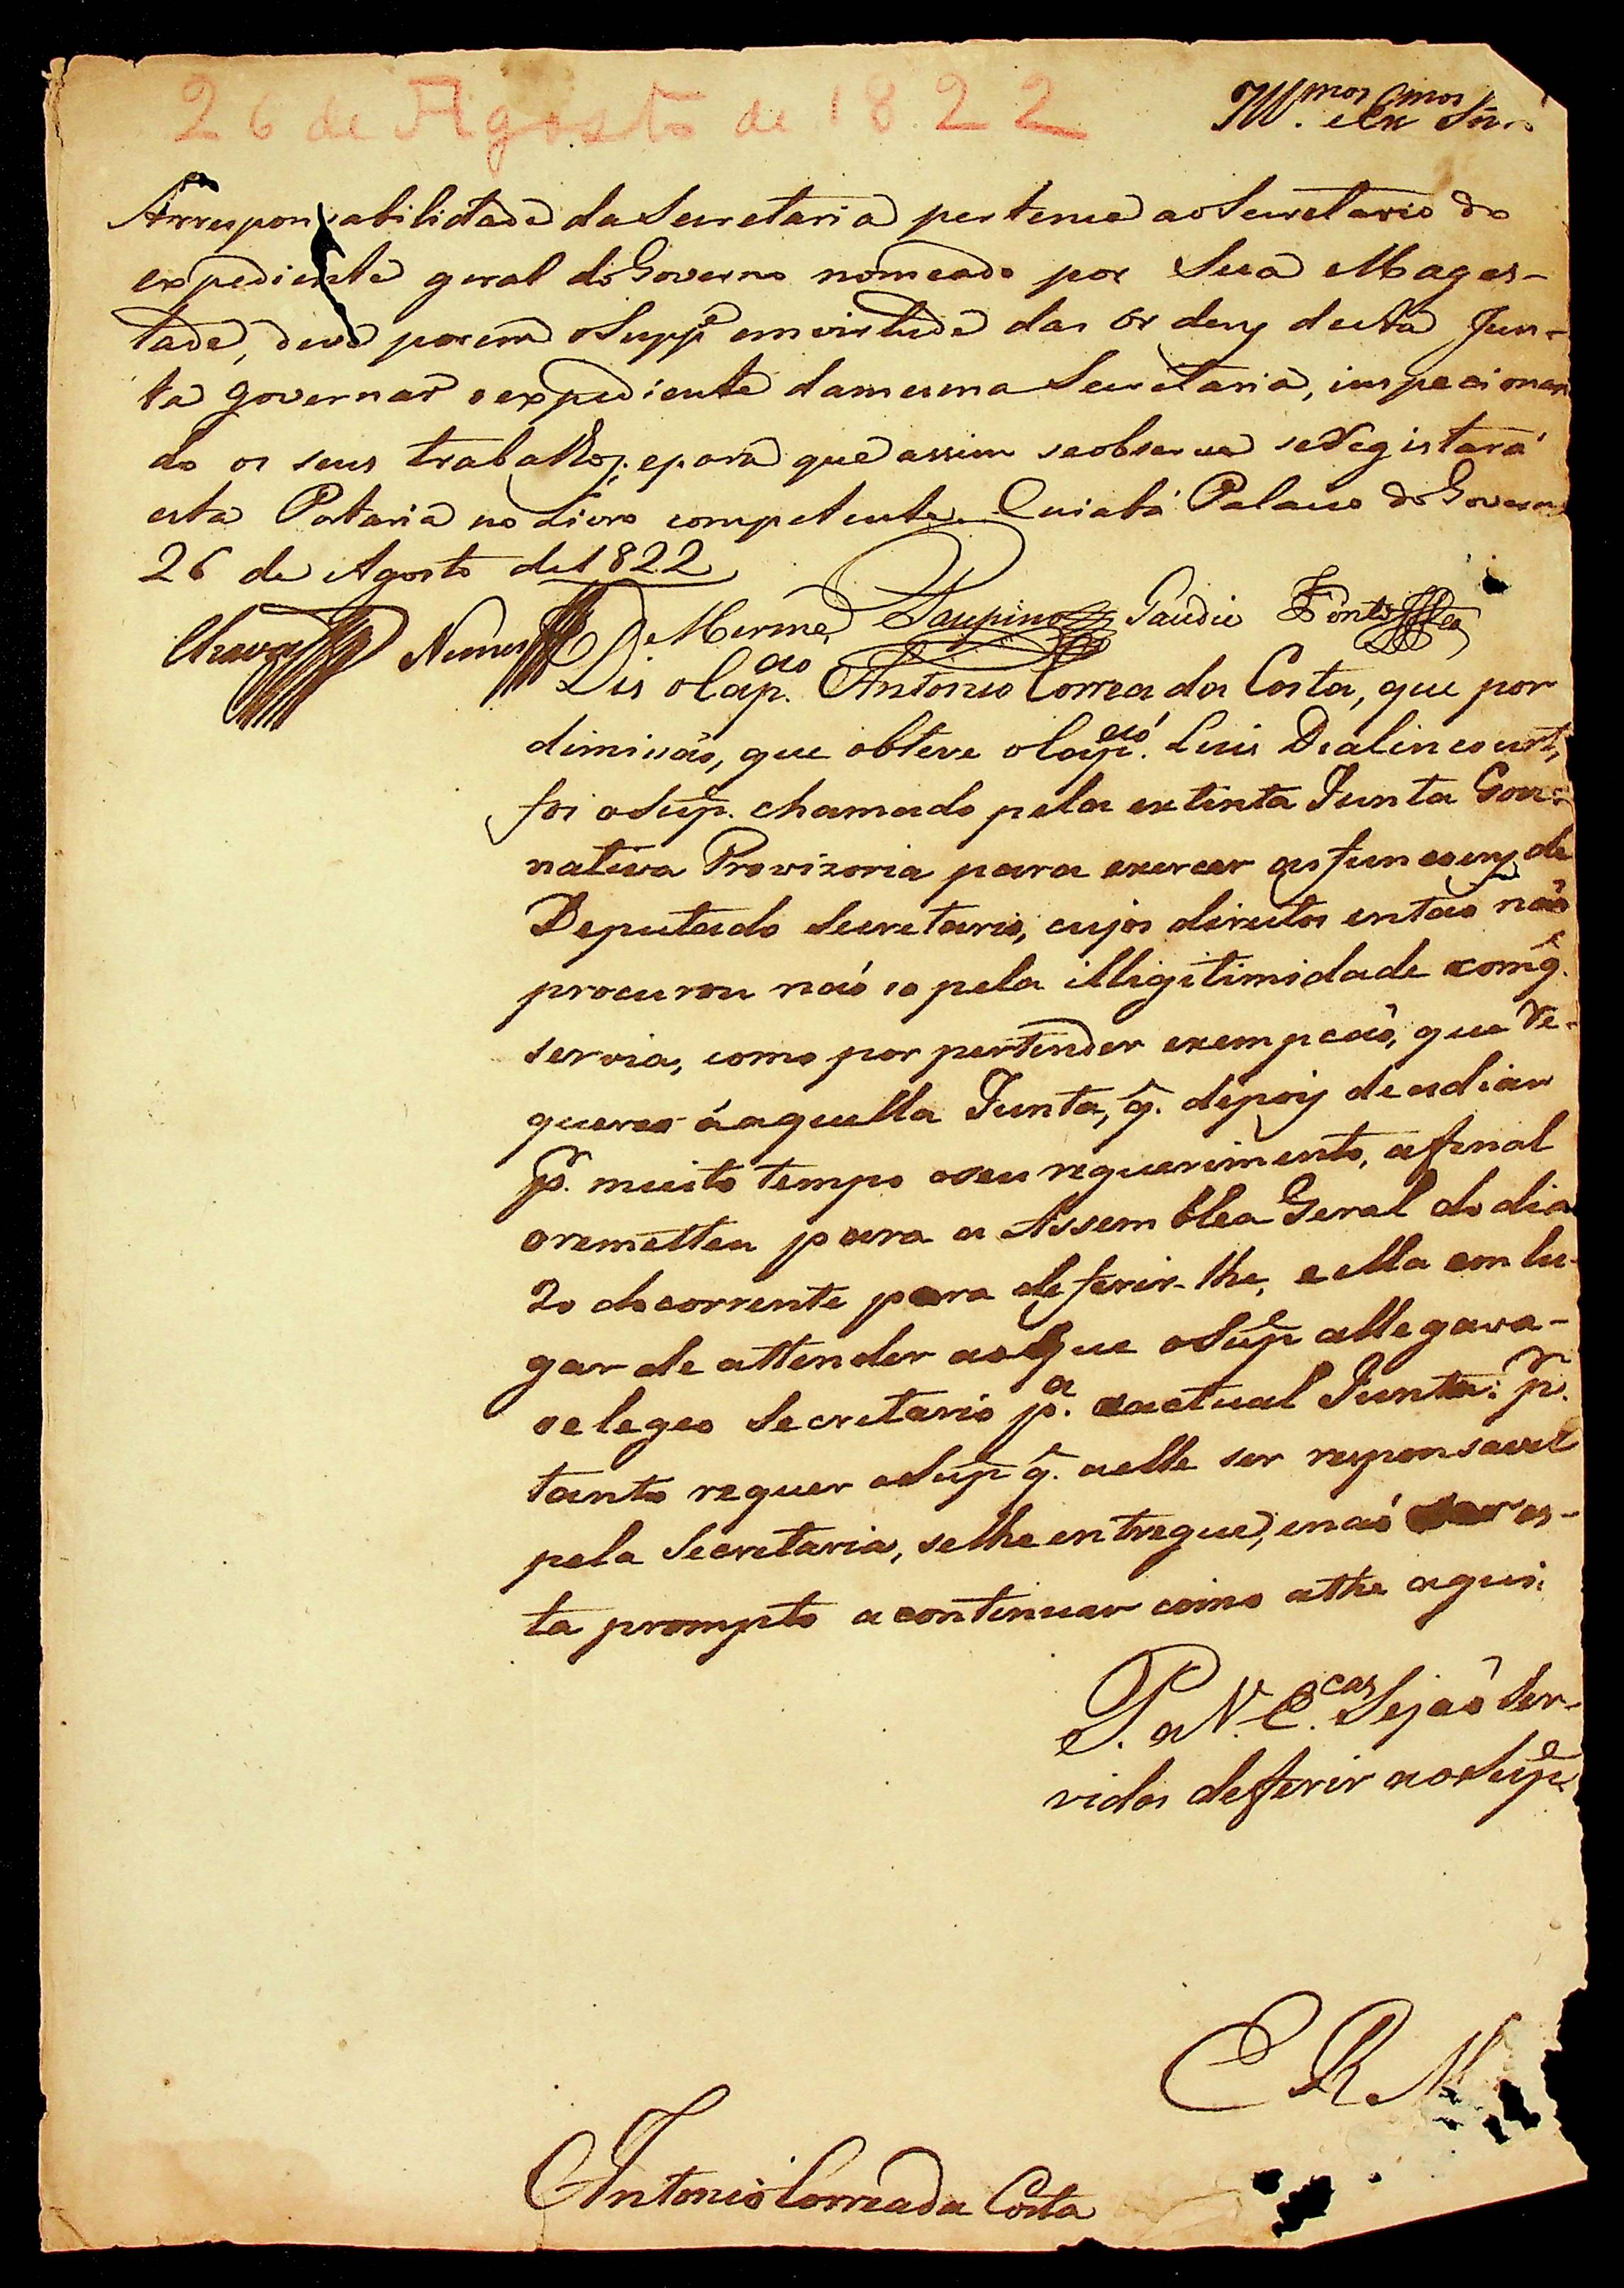 26 de Agosto de 1822
Ill.mos Ex.mos Snr.s
Arresponsabilidade da Secretaria pertence ao Secretario do
expediente geral do Governo nomeado por Sua Mages-
tade, deve porem o Supp.e em virtude das Ordens desta Jun-
ta governar o expediente da mesma Secretaria, inspecionan
do os seus trabalhos; e para que assim se observe se Registará
esta Portaria no Livro competente. Cuiabá Palacio do Governo
26 de Agosto de 1822
Nunes De Merme Gaudie Pontes
Dis o Cap.ão Antonio Correa da Costa, que por
dimisaõ, que obteve o Cap.ão Luis Dealincourt,
foi o Sup. chamado pela extinta Junta Gover-
nativa Provizoria para exercer as funcoens de
Deputado Secretario, cujos direitos entaõ naõ
procurou naõ so pela illigitimidade com q̃.
servia, como por pertender exempcaõ, que Re-
quereo á aquella Junta, q̃. depois de adiar
p.r muito tempo o seu requerimento, afinal
o remetteu para a Assemblea Geral do dia
20 do corrente para deferir-lhe, e ella em lu-
gar de attender ao que o Sup.e allegava-
o elegeo Secretario p.a a actual Junta: p.r
tanto requer o Sup.e q̃. a elle ser responsavel
pela Secretaria, se lhe entregue, e naõ es-
ta prompto a continuar como athe aqui.
P. a V. E.cas Sejaõ Ser-
vidos defferir ao Sup.e
E R M
Antonio Correa da Costa